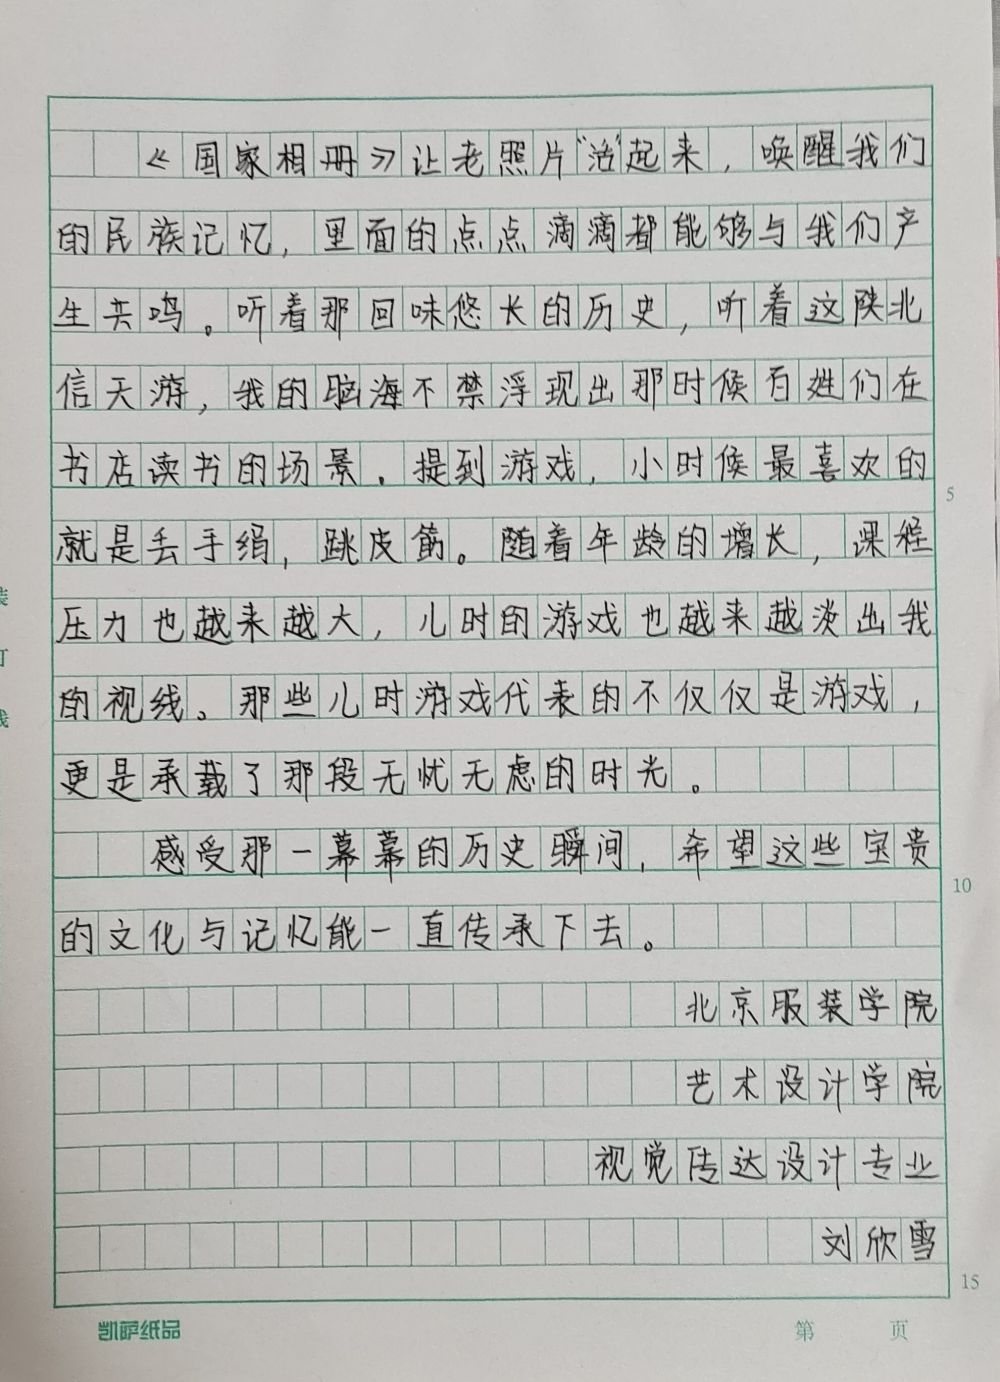 《国家相册》让老照片“活”起来，唤醒我们
的民族记忆，里面的点点滴滴都能够与我们产
生共鸣。听着那回味悠长的历史，听着这陕北
信天游，我的脑海不禁浮现出那时候百姓们在
书店读书的场景。提到游戏，小时候最喜欢的
就是丢手绢，跳皮筋。随着年龄的增长，课程
压力也越来越大，儿时的游戏也越来越淡出我
的视线。那些儿时游戏代表的不仅仅是游戏，
更是承载了那段无忧无虑的时光。
感受那一幕幕的历史瞬间，希望这些宝贵
的文化与记忆能一直传承下去。
北京服装学院
艺术设计学院
视觉传达设计专业
刘欣雪
5
10
15
凯萨纸品
第 页